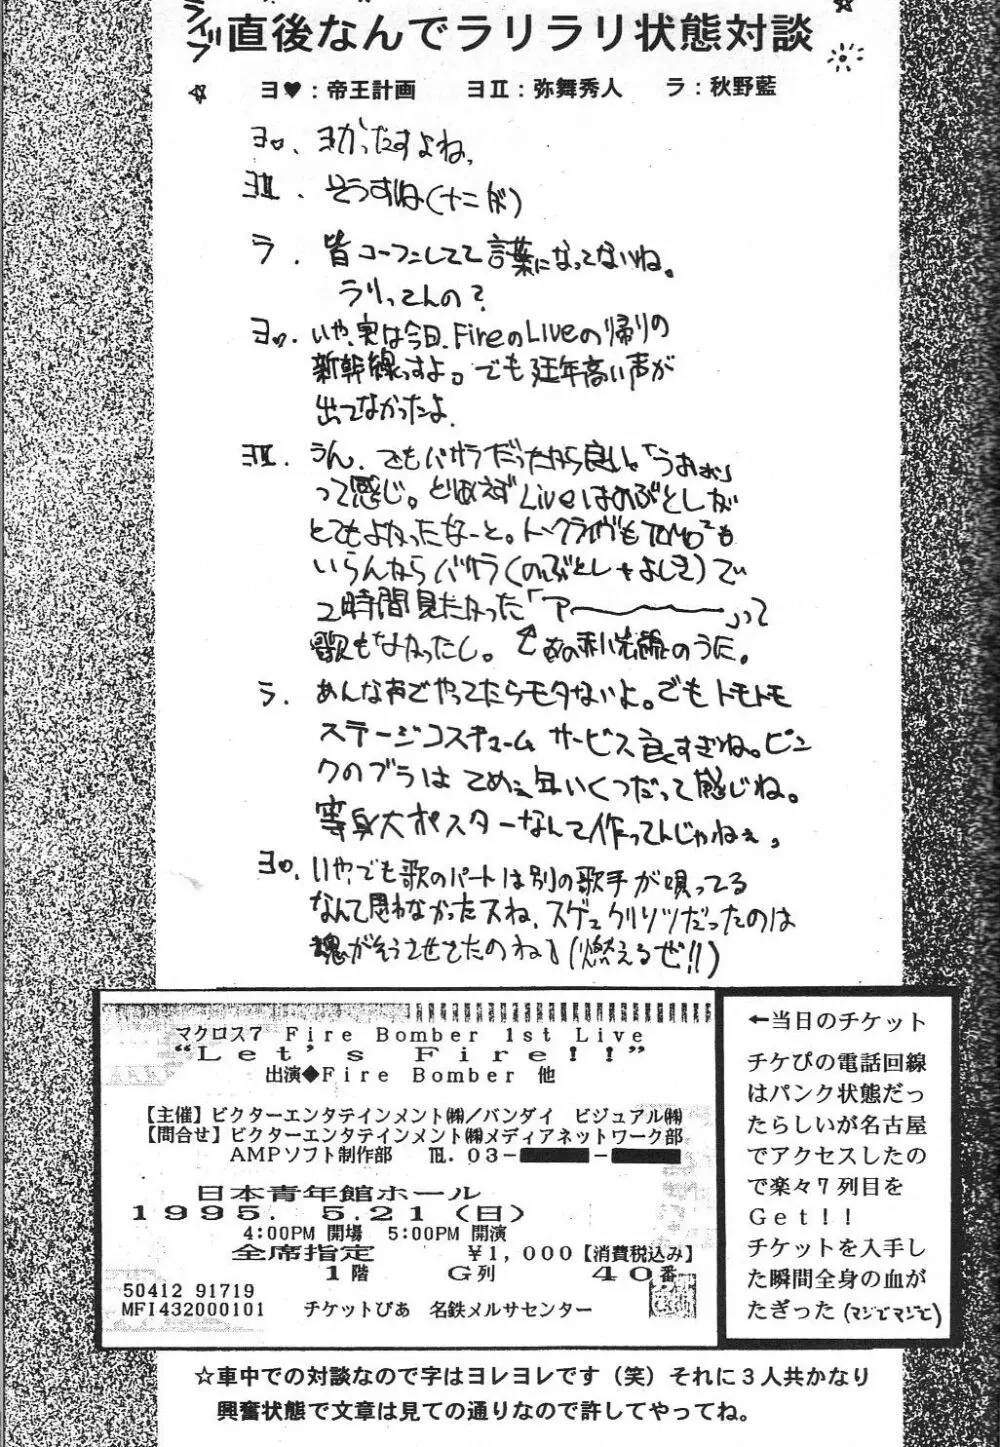 ライブ直後なんでラリラリ状態対談
ヨ♥:帝王計画 ヨⅡ:弥舞秀人 ラ:秋野藍
ヨ♥. ヨかったすよね、
ヨⅡ. そうすね
ラ. 皆コーフンしてて言葉になってないね。
ラリってんの?
ヨ♥. いや、実は今日、FireのLiveの帰りの
新幹線っすよ。でも延年高い声が
出てなかったよ.
ヨⅡ. うん、でもバサラだったから良い。「うおぉ」
って感じ。とりあえずLiveはのぶとしが
とてもよかったなーと。トークライヴもTOMO²も
いらんならバサラ(のぶとし+よしき)で
2時間見たかった「アーーーー」って
歌もなかったし。
ラ. あんな声でやってたらモタないよ。でもトモトモ
ステージコスチューム サービス良すぎね。ピン
クのブラは てめぇ年いくつだって感じね。
等身大ポスターなんて作ってんじゃねぇ。
ヨ♥. いや、でも歌のパートは別の歌手が唄ってる
なんて思わなかったスね、スゲェクリソツだったのは
魂がそうさせてたのね(燃えるぜ!!)
マクロス7 Fire Bomber 1st Live
“Let's Fire!!”
出演◆Fire Bomber 他
【主催】ビクターエンタテインメント㈱/バンダイ ビジュアル㈱
【問合せ】ビクターエンタテインメント㈱メディアネットワーク部
AMPソフト制作部 ℡.03- -
日本青年館ホール
1995. 5.21(日)
4:00PM 開場 5:00PM 開演
全席指定 ¥1,000【消費税込み】
1階 G列 40番
50412 91719
MFI432000101 チケットぴあ 名鉄メルサセンター
←当日のチケット
チケぴの電話回線
はパンク状態だっ
たらしいが名古屋
でアクセスしたの
で楽々7列目を
Get!!
チケットを入手し
た瞬間全身の血が
たぎった(マジでマジで)
☆車中での対談なので字はヨレヨレです(笑)それに3人共かなり
興奮状態で文章は見ての通りなので許してやってね。